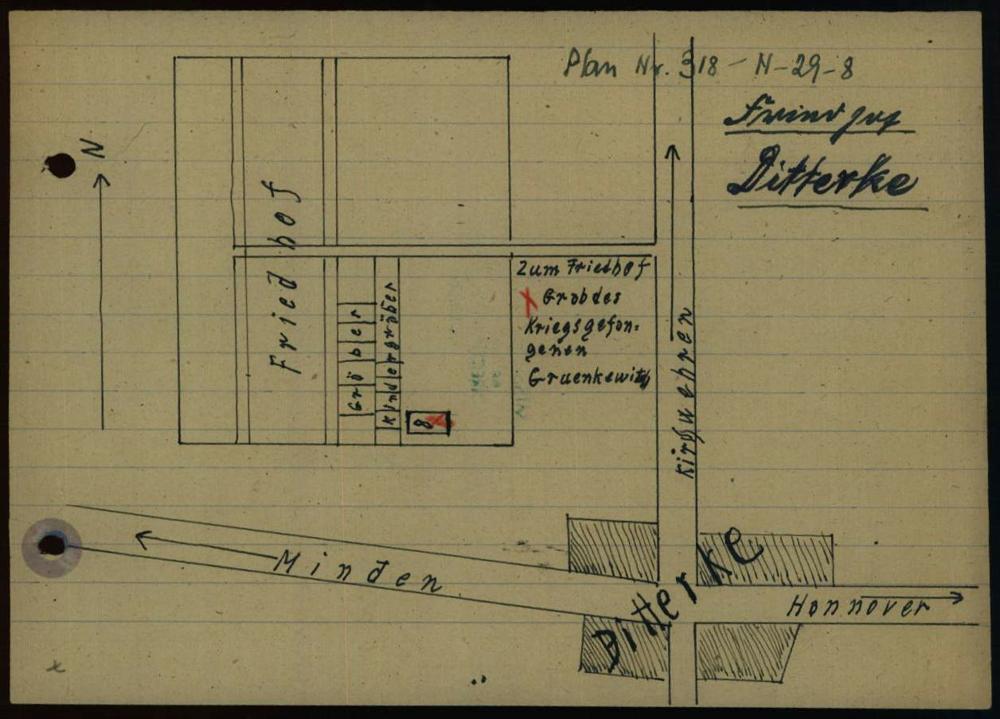 Plan Nr. 318 - N-29-8
Friedhof
Ditterke
N
Friedhof
Zum Friedhof
X Grab des
Kriegsgefan-
genen
Gruenkewitz
Gräber
Kindergräber
8
X
Kirchwehren
Minden
Ditterke
Hannover